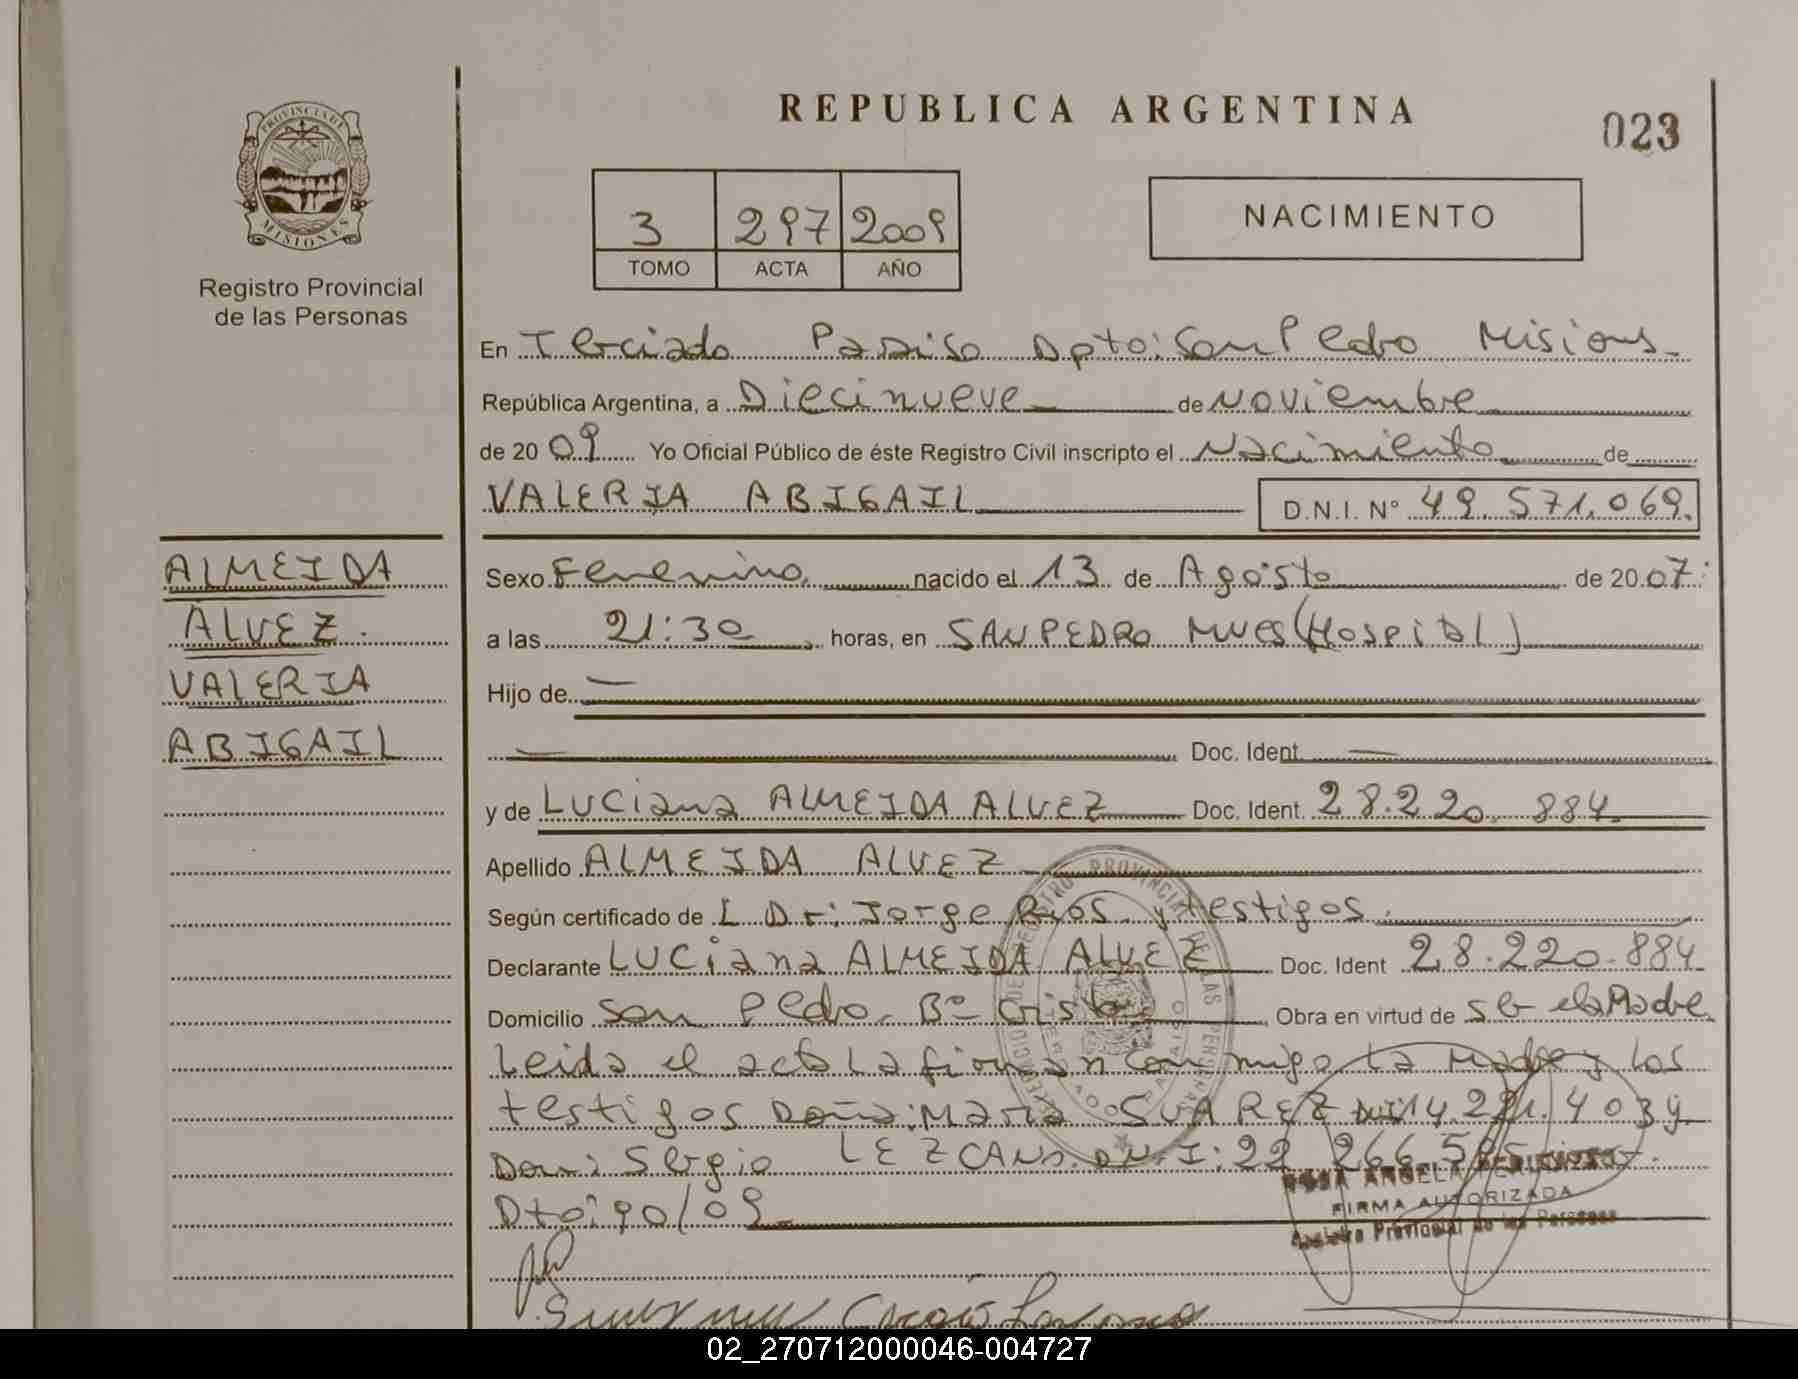 REPUBLICA ARGENTINA
023
PROVINCIA DE
MISIONES
Registro Provincial
de las Personas
3 297 2009
TOMO ACTA AÑO
NACIMIENTO
En Terciado Paraiso Dpto: San Pedro Misiones
República Argentina, a Diecinueve de Noviembre
de 2009 Yo Oficial Público de éste Registro Civil inscripto el Nacimiento de
VALERIA ABIGAIL D.N.I. N° 49.571.069.
ALMEIDA
ALVEZ.
VALERIA
ABIGAIL
Sexo Femenino nacido el 13 de Agosto de 2007
a las 21:30 horas, en SAN PEDRO MNES (HospitaL)
Hijo de
Doc. Ident.
y de LUCiana ALMEIDA ALVEZ Doc. Ident. 28.220.884.
Apellido ALMEIDA ALVEZ
Según certificado de L Dr: Jorge Rios y testigos.
Declarante LUCiana ALMEIDA ALVEZ Doc. Ident 28.220.884
Domicilio San Pedro. B° Cristo Obra en virtud de ser ela Madre
Leida el acta La firman conmigo La Madre y Los
testigos Doña: Maria SUAREZ DNI 14.221.403 y
Don: Sergio LEZCANO. D.N.I: 22 266
Dto: 90/09
REGISTRO PROVINCIAL DE LAS PERSONAS
ROSA ANGELA
FIRMA AUTORIZADA
Registro Provincial de las Personas
02_270712000046-004727